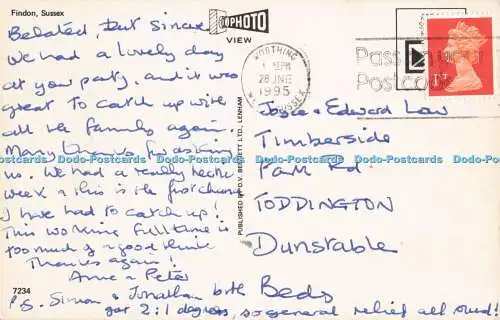 Findon, Sussex
PHOTO
VIEW
Belated, But Sincere
We had a lovely day
at your party, and it was
great to catch up with
all the family again.
Many thanks for asking
us. We had a really hectic
week & this is the first chance
I have had to catch up!
This working full time is
too much of a good thing
Thanks again!
Anne & Peter
P.S. Simon & Jonathan both
got 2:1 degrees, so general relief all round!
7234
PUBLISHED BY D.V. BENNETT LTD., LENHAM
WORTHING
PM
28 JNE
1995
SUSSEX
Pass on your
Postcode
1ST
Joyce & Edward Law
Timberside
Park Rd
TODDINGTON
Dunstable
Beds
Dodo-Postcards Dodo-Postcards Dodo-Postcards Dodo-Postcards Dodo-Postcards Dodo-Postcards